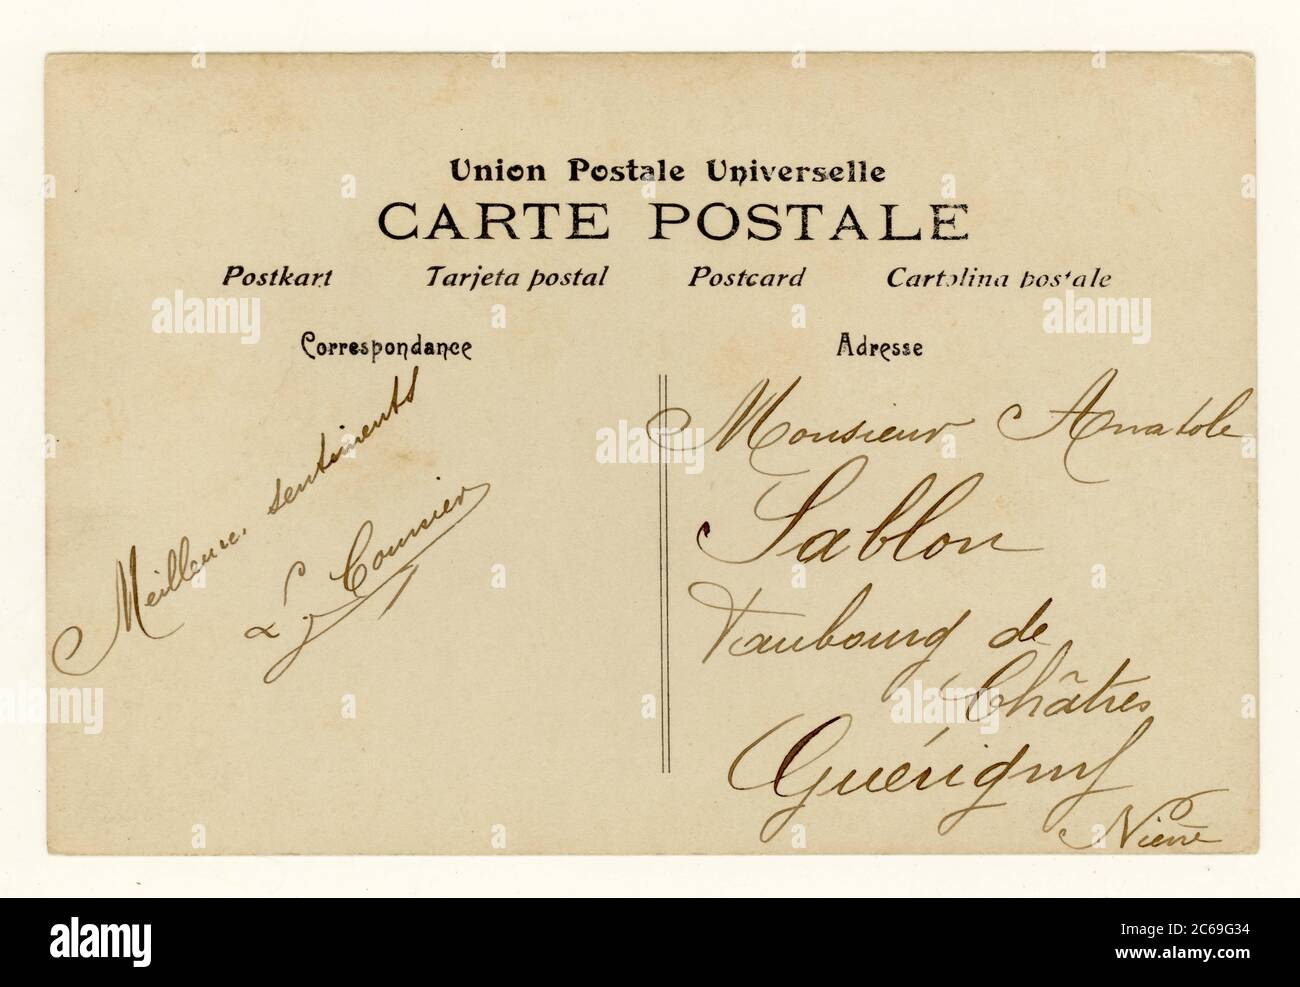 Union Postale Universelle
CARTE POSTALE
Postkart Tarjeta postal Postcard Cartolina postale
Correspondance
Meilleurs sentiments
Adresse
Monsieur Anatole
Sablon
Faubourg de
Châtres
Guérigny
Nièvre
alamy
Image ID: 2C69G34
www.alamy.com